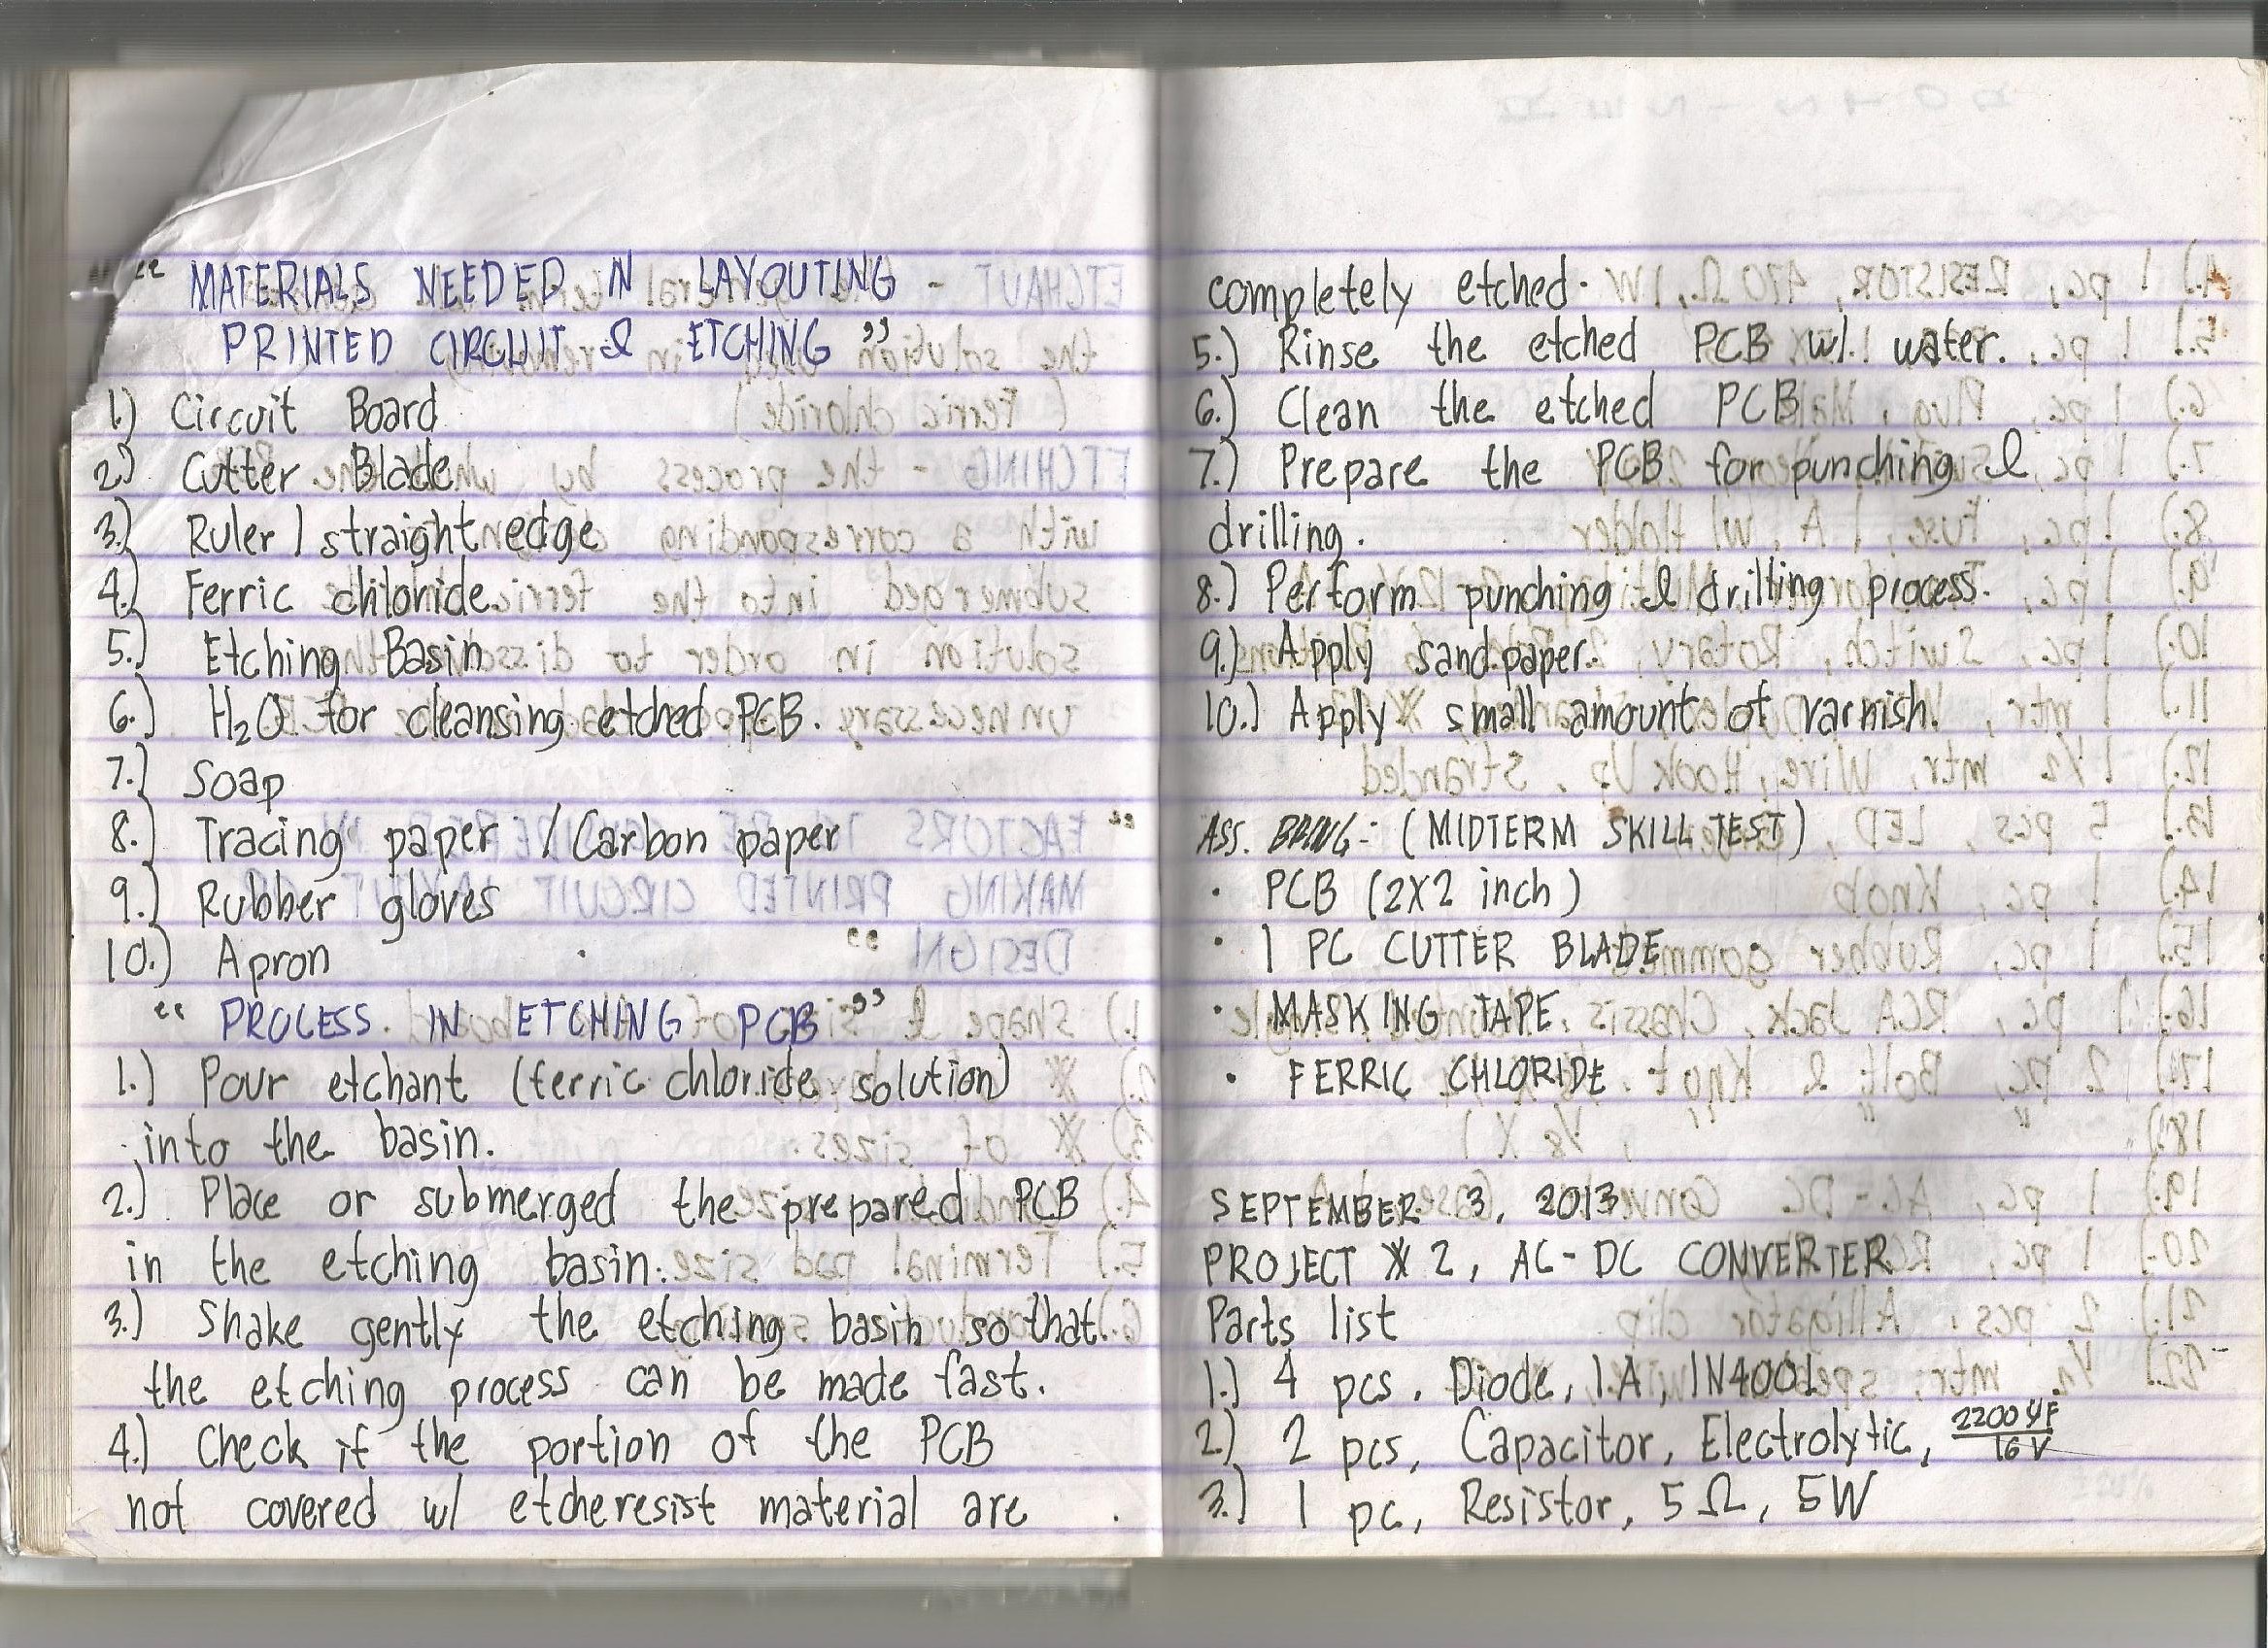 “ MATERIALS NEEDED IN LAYOUTING -
PRINTED CIRCUIT & ETCHING ”
1.) Circuit Board
2.) Cutter Blade
3.) Ruler / straight edge
4.) Ferric chloride
5.) Etching Basin
6.) H₂O for cleansing etched PCB.
7.) Soap
8.) Tracing paper / Carbon paper
9.) Rubber gloves
10.) Apron
“ PROCESS IN ETCHING PCB ”
1.) Pour etchant (ferric chloride solution)
into the basin.
2.) Place or submerged the prepared PCB
in the etching basin.
3.) Shake gently the etching basin so that
the etching process can be made fast.
4.) Check if the portion of the PCB
not covered w/ etcheresist material are
completely etched.
5.) Rinse the etched PCB w/ water.
6.) Clean the etched PCB
7.) Prepare the PCB for punching &
drilling.
8.) Perform punching & drilling process.
9.) Apply sandpaper.
10.) Apply small amount of varnish.
ASS. BRING: (MIDTERM SKILL TEST)
· PCB (2X2 inch)
· 1 PC CUTTER BLADE
· MASKING TAPE
· FERRIC CHLORIDE
SEPTEMBER 3, 2013
PROJECT # 2, AC-DC CONVERTER
Parts list
1.) 4 pcs. Diode, 1A, 1N4001
2.) 2 pcs, Capacitor, Electrolytic, 2200 µF / 16 V
3.) 1 pc, Resistor, 5 Ω, 5W